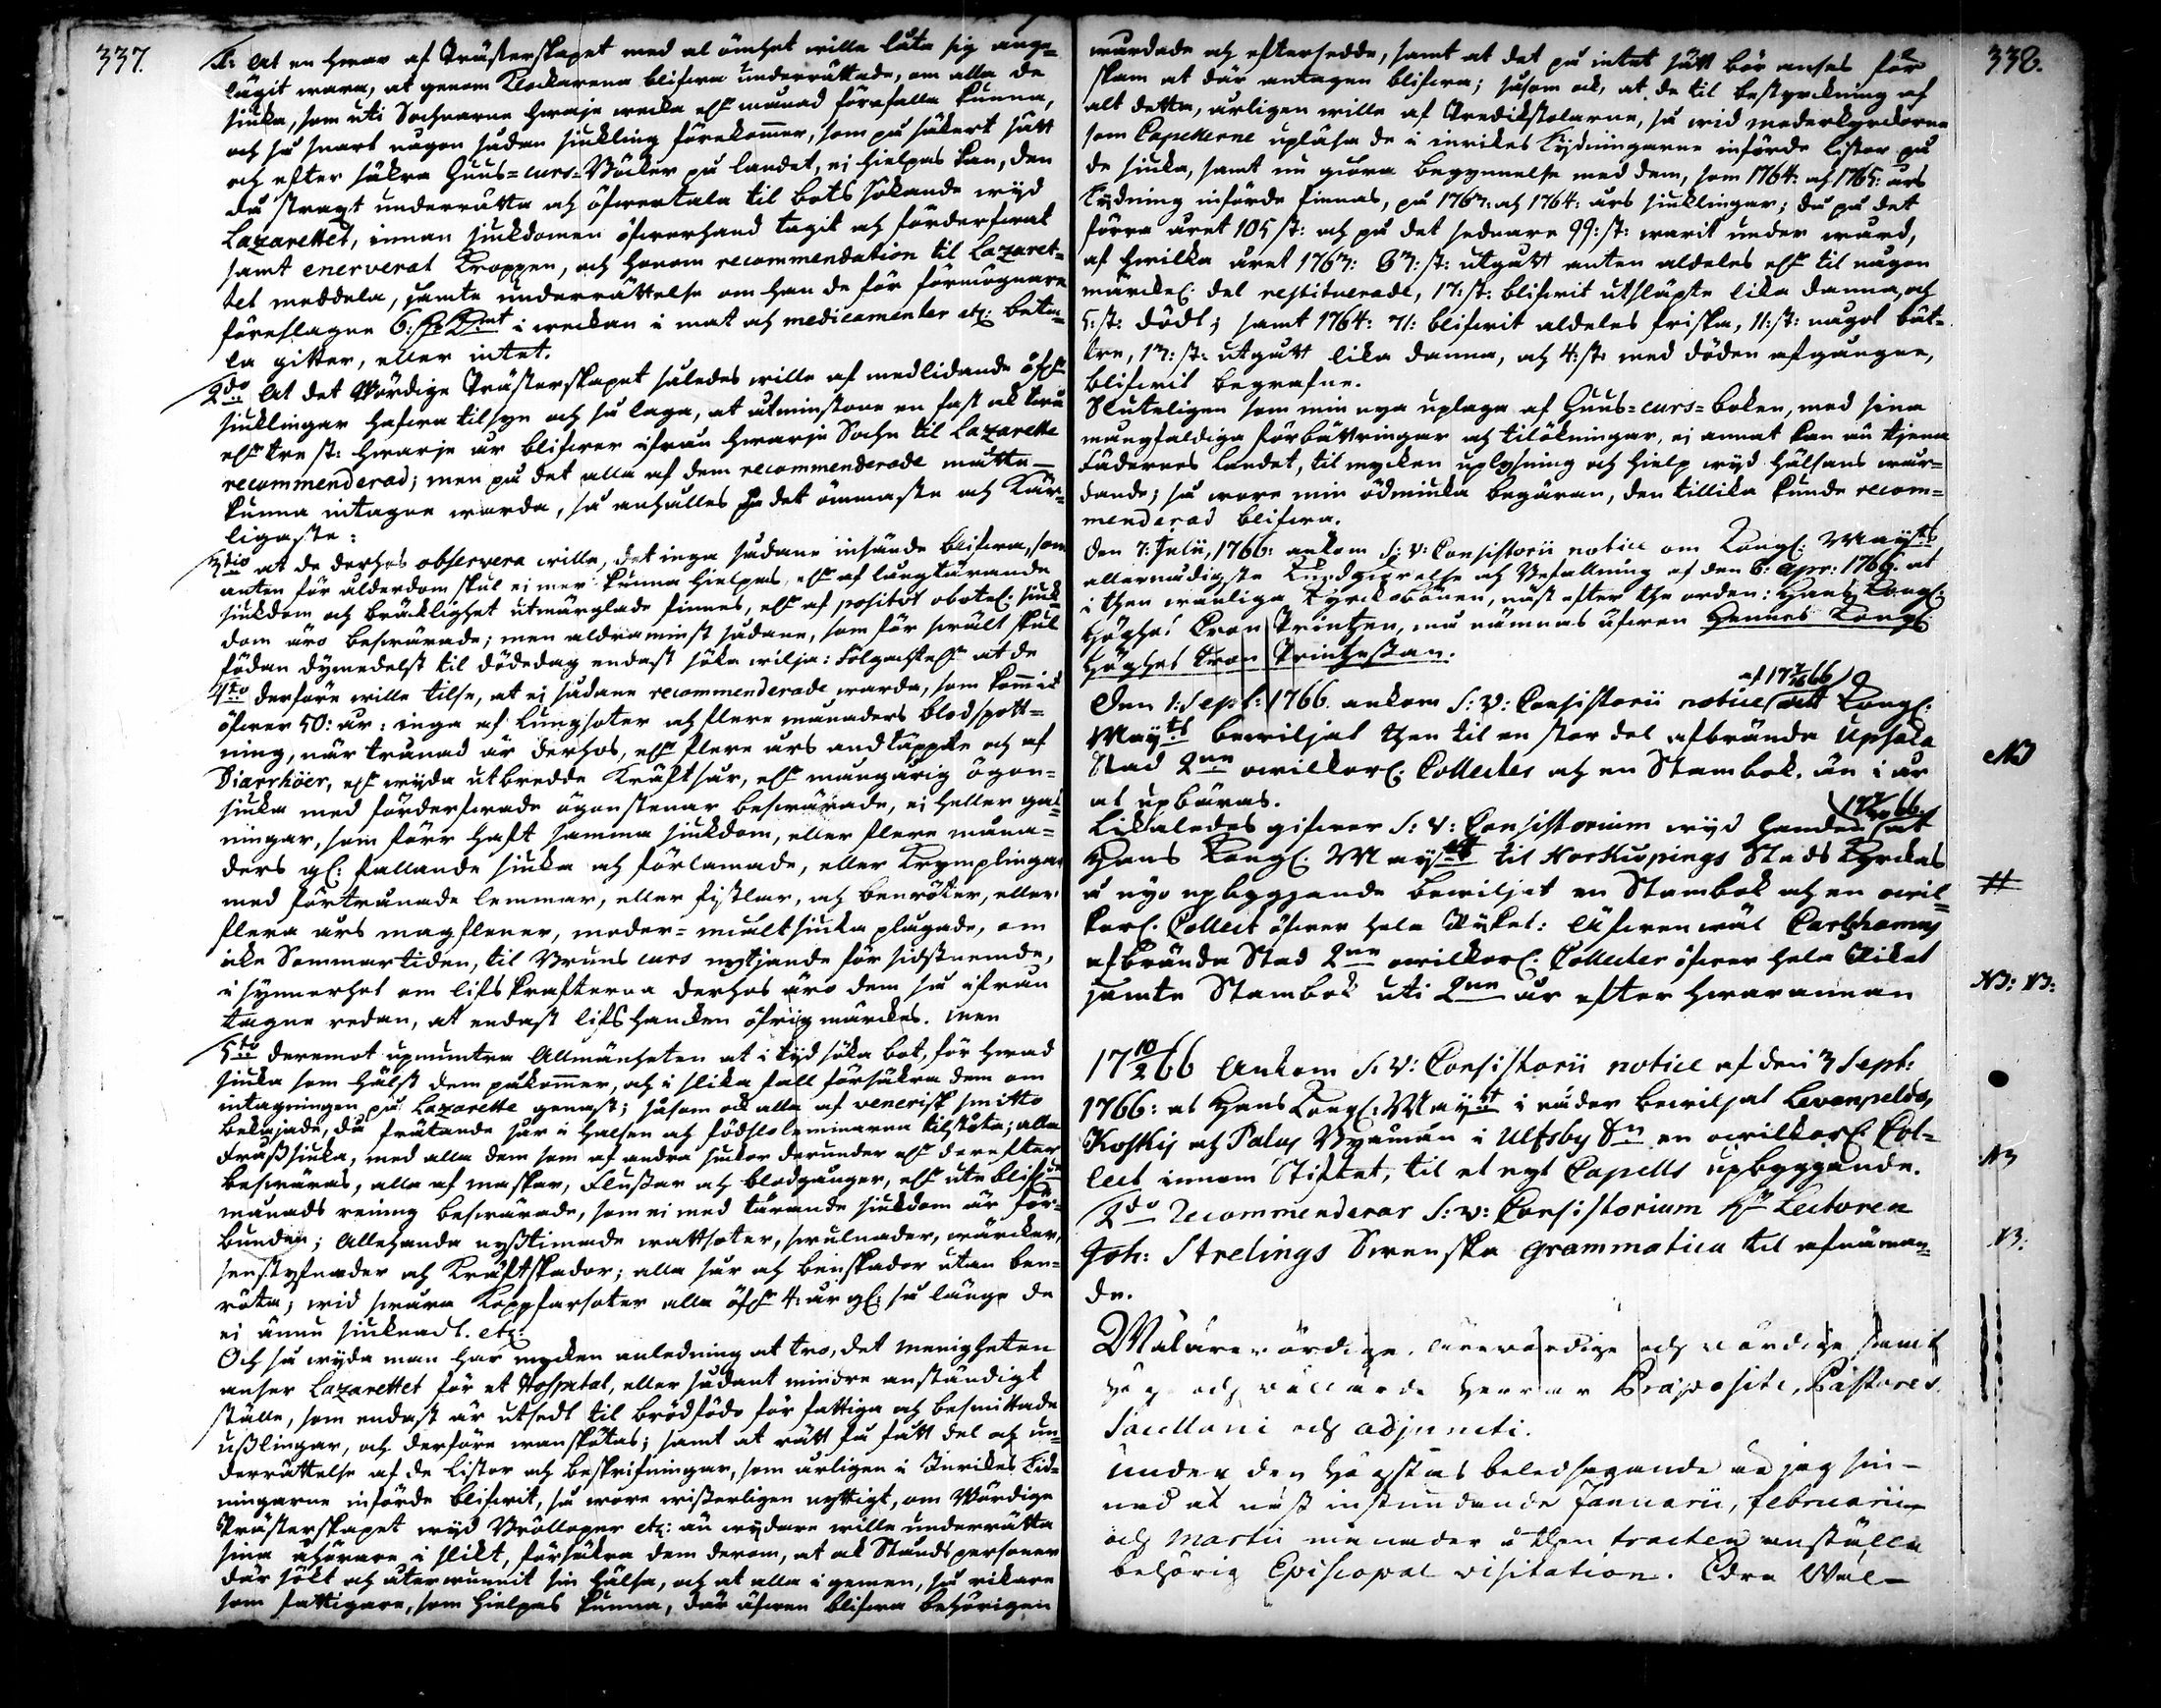 337.
1: At en hwar af Prästerskapet med al ömhet wille låta sig ange-
lägit wara, at genom Klockarena blifwa underrättade, om alla de
siuka, som uti Sochnarne hwarje wecka elr månad förefalla kunna,
och så snart någon sådan siukling förekommer, som på säkert sätt
och efter säkra Huus-curs-Böcker på landet, ej hielpas kan, den
då straxt underrätta och öfwertala til bots sökande wijd
Lazarettet, innan siukdomen öfwerhand tagit och förderfwat
samt enerverat kroppen, och honom recommendation til Lazaret-
tet meddela, jämte underrättelse om han de för förmögnare
föreslagne 6: Dr Kmt i weckan i mat och medicamenter etc: beta-
la gitter, eller intet.
2do At det Wördige Prästerskapet således wille af medlidande öfwer
siuklingar hafwa tilsyn och så laga, at utminstone en fast ok twå
elr tre st: hwarje år blifwer ifrån hwarje Sochn til Lazarette
recommenderad; men på det alla af dem recommenderade måtte
kunna intagne warda, så anhålles på det ömmaste och kär-
ligaste:
3tio at de derhos observera wille, det inga sådane insände blifwa, som
anten för ålderdom skul ei mer kunna hielpas, elr af långtärande
siukdom och bräcklighet utmärglade finnes, elr af positivt obotel: siuk-
dom äro beswärade; men aldraminst sådane, som för swält skul
födan dymedelst til dödedag endast söka wilja: Följachtel: at de
4to derföre wille tilse, at ej sådane recommenderade warda, som kommit
öfwer 50: år: inga af Lungsoter och flere månaders blodspott-
ning, när trånad är derhos, elr flere års andtäppa och af
Diarrhöer, elr wijda utbredde Kräftsår, elr mångårig ögon-
siuka med förderfwade ögonstenar beswärade, ej heller gal-
ningar, som förr haft samma siukdom, eller flere måna-
ders gl: fallande siuka och förlamade, eller Krymplingar
med förtrånade lemmar, eller fistlar, och benrötor, eller
flera års magflener, moder- mieltsiuka plågade, om
icke Sommartiden, til Bruns curs nytjande för sidstnemde,
i synnerhet om lifskrafterna derhos äro dem så ifrån
tagne redan, at endast lifshancken öfrig märckes. Men
5to deremot upmuntra Allmänheten at i tijd söka bot, för hwad
siuka som hälst dem påkommer, och i slika fall försäkra dem om
intagningen på Lazarette genast; såsom ock alla af venerisk smitto
belajade, då frätande sår i halsen och födsloleminarna tilstöta; alla
fraßsiuka, med alla dem som af andra siukor derunder elr derefter
beswäras, alla af maskar, Flußar och blodgånger, elr ute blifwen
månads rening beswärade, som ei med tärande siukdom är för-
bunden; Allehanda nyßtimade wattsoter, swulnader, wärcker,
senstyfnader och Kräftskador; alla sår och benskador utan ben-
röta; wid swåra Koppfarsoter alla öfr 4: år gl: så länge de
ei ännu siuknadt. etc:
Och så wijda man har mycken anledning at tro, det menigheten
anser Lazarettet för et Hospital, eller sådant mindre anständigt
ställe, som endast är utsedt til brödföda för fattiga och besmittade
ußlingar, och derföre wanskötas; samt at rätt få fått del och un-
derrättelse af de Listor och beskrifningar, som årligen i Inrikes Tid-
ningarne införde blifwit, så wore wißerligen nyttigt, om Wördige
Prästerskapet wijd Bröllopper etc: än wijdare wille underrätta
sina åhörare i slikt, försäkra dem derom, at ok Ståndspersoner
där sökt och återwunnit sin hälsa, och at alla i gemen, så rikare
som fattigare, som hielpas kunna, där äfwen blifwa behörigen
338.
wårdade och eftersedde, samt at det på intet sätt bör anses för
skam at där antagen blifwa; såsom ock, at de til bestyrckning af
alt detta, årligen wille af Predikstolarne, så wid moderkyrckorne
som Capellerne upläsa de i inrikes Tijdningarne införde listor på
de siuka, samt nu giöra begynnelse med dem, som 1764: och 1765: års
Tijdning införde finnas, på 1763: och 1764: års siuklingar; då på det
förra året 105 st: och på det sednare 99: st: warit under wård,
af hwilka året 1763: 83: st: utgått anten aldeles elr til någon
märckel: del restituerade, 17: st: blifwit utsläpte lika danna, och
5: st: dödt; samt 1764: 71: blifwit aldeles friska, 11: st: något bät-
tre, 13: st: utgått lika danna, och 4: st: med döden afgångne,
blifwit begrafne.
Sluteligen som min nya uplaga af Huus-curs-boken, med sina
mångfaldiga förbättringar och tilökningar, ej annat kan än tjena
Fäderneslandet, til mycken uplysning och hielp wijd hälsans wår-
dande; så wore min ödmiuka begäran, den tillika kunde recom-
menderad blifwa.
Den 7: Julii, 1766: ankom S: V: Consistorii notice om Kongl: Maijts
allernådigste Kundgiörelse och Befallning af den 8: Apr: 1766: at
i then wanliga kyrckobönen, näst efter the orden: Hans Kongl:
höghet Cron Printzen, må nämnas äfwen Hennes Kongl:
Höghet Cron Printzeßan.
Den 1: Sept: 1766. ankom S: V: Consistorii notice af 17 66 att Kongl:
Maijts bewiljat then til en stor del afbrände Upsala
Stad 2ne owilkorl: Collecter och en Stambok. än i år
at upbäras.
Likaledes gifwer S: V: Consistorium wijd handen 17 66. at
Hans Kongl: Maijst til Norkiöpings Stads Kyrckas
å nyo upbyggande bewiljat en Stambok och en owil-
korl: Collect öfwer hela Rijket: Äfwenwäl Carlshamns
afbrände Stad 2ne owilkorl: Collecter öfwer hela Riket
jämte Stambok uti 2ne år efter hwarannan
17 10/2 66 Ankom S: V: Consistorii notice af den 3 Sept:
1766: at Hans Kongl: Maijst i nåder bewiljat Levanpelto,
Koskis och Palus Byamän i Ulfsby Sn en owilkorl: Col-
lect innom Stiftet, til et nyt Capells upbyggande.
2do Recommenderar S: V: Consistorium Hr Lectoren
Joh: Strelings Swenska grammatica til afnäman-
de.
Wälärewördige, ärewördige och wördige samt
hög och wällärde Herrar Præpositi, Pastores,
Sacellani och adjuncti.
Under den högstas beledsagande är jag sin-
nad at näst instundande Januarii, Februarii
och Martii månader å then tracten anställa
behörig Episcopal visitation. Edra Wäl-
NB
#
NB: NB:
NB
NB: